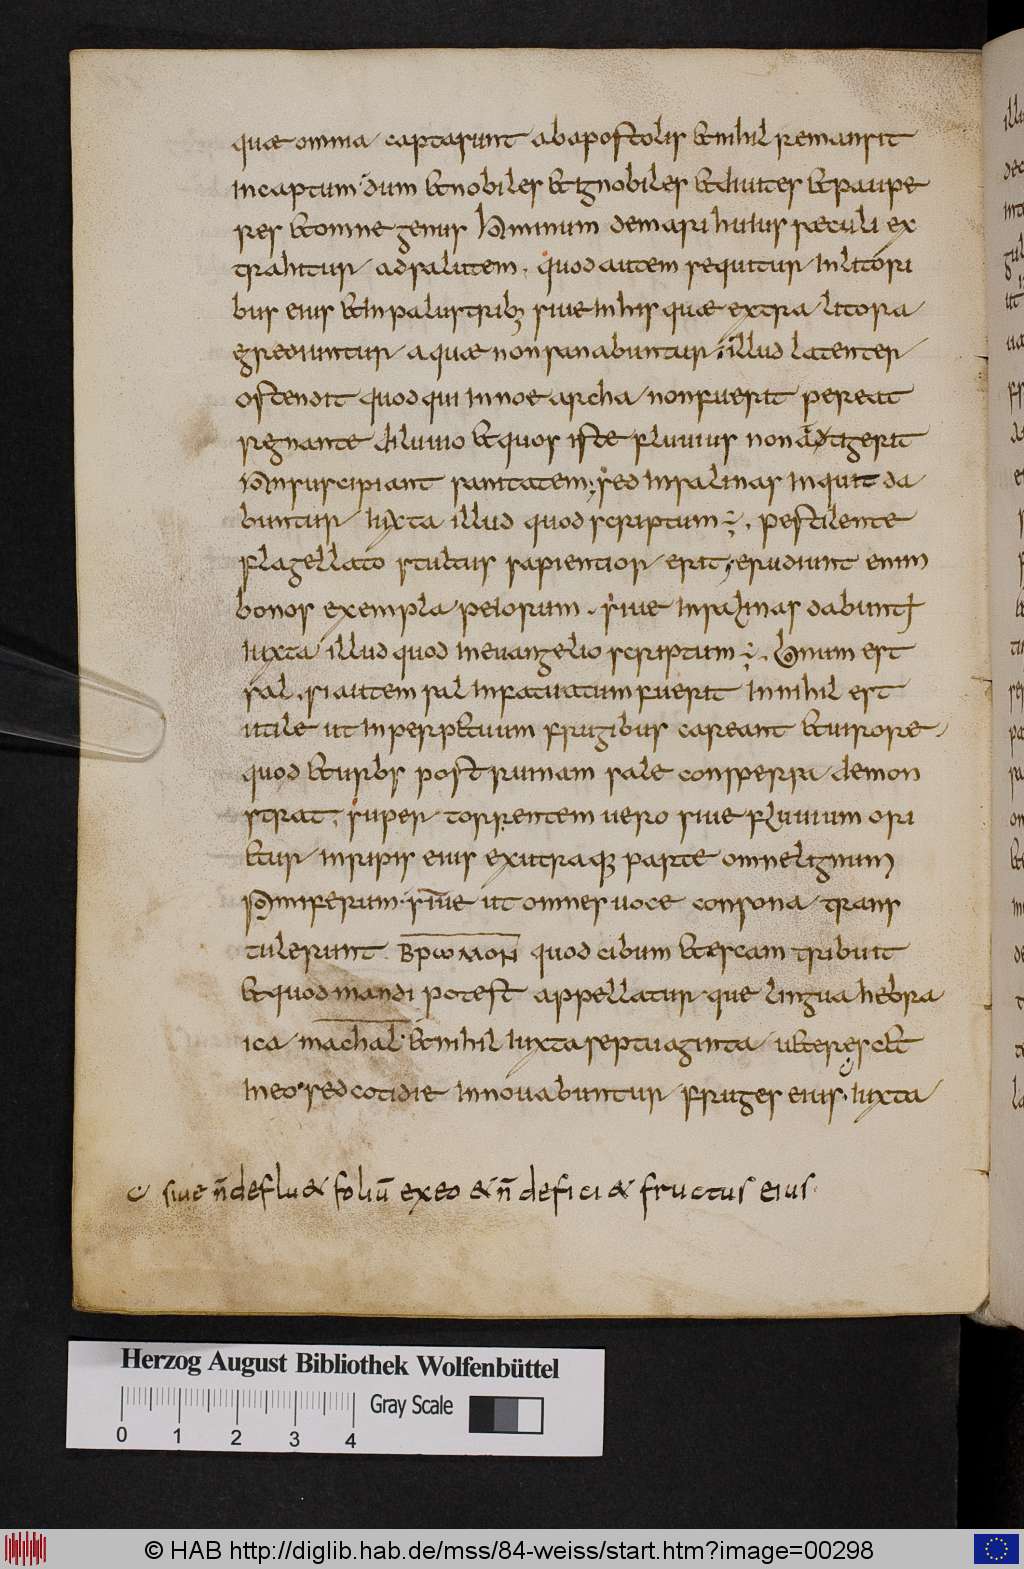 quae omnia captasunt abapostolis &nihil remansit
incaptum dum &nobiles &ignobiles &diuites &paupe
res &omne genus hominum demari huius saeculi ex
trahitur adsalutem. quod autem sequitur inlitori
bus eius &in palustribꝫ siue inhis quae extra litora
egrediuntur aquae nonsanabuntur; illud latenter
ostendit quod qui innoe archa nonfuerit pereat
regnante diluuio &quos iste fluuius non adtigerit
suscipiant sanitatem; sed insalinas inquit da
buntur iuxta illud quod scriptum ÷. pestilente
flagellato stultus sapientior erit; erudiunt enim
bonos exempla peiorum. siue insalinas dabunt
iuxta illud quod ineuangelio scriptum ÷. bonum est
sal. si autem sal infatuatum fuerit innihil est
utile ut inperp&uum frugibus careant &uirore
quod &urbs post ruinam sale conspersa demon
strat. super torrentem uero siue fluuium ori
&ur inripis eius exutraqꝫ parte omnelignum
pomiferum. siue ut omnes uoce consona trans
tulerunt ΒΡΩΜΟΝ quod cibum &escam tribuit
&quod mandi potest appellatur que lingua hebra
ica machal &nihil iuxta septuaginta u&eresc&
ineo sed cotidie innouabuntur fruges eius. iuxta
siue n̄ deflu& foliū exeo & n̄ defici& fructus eius.
Herzog August Bibliothek Wolfenbüttel
Gray Scale
0 1 2 3 4
© HAB http://diglib.hab.de/mss/84-weiss/start.htm?image=00298